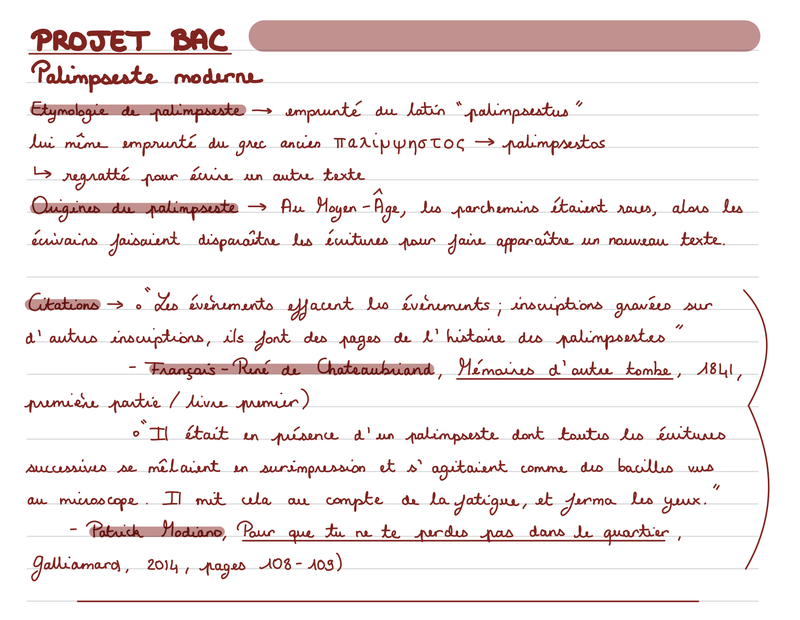 PROJET BAC
Palimpseste moderne
Etymologie de palimpseste → emprunté du latin "palimpsestus"
lui même emprunté du grec ancien παλίμψηστος → palimpsestos
↳ regratté pour écrire un autre texte
Origines du palimpseste → Au Moyen-Âge, les parchemins étaient rares, alors les
écrivains faisaient disparaître les écritures pour faire apparaître un nouveau texte.
Citations → o "Les évènements effacent les évènements ; inscriptions gravées sur
d'autres inscriptions, ils font des pages de l'histoire des palimpsestes"
- Français-René de Chateaubriand, Mémoires d'autre tombe, 1841,
première partie / livre premier)
o "Il était en présence d'un palimpseste dont toutes les écritures
successives se mêlaient en surimpression et s'agitaient comme des bacilles vus
au microscope. Il mit cela au compte de la fatigue, et ferma les yeux."
- Patrick Modiano, Pour que tu ne te perdes pas dans le quartier,
Galliamard, 2014, pages 108-109)